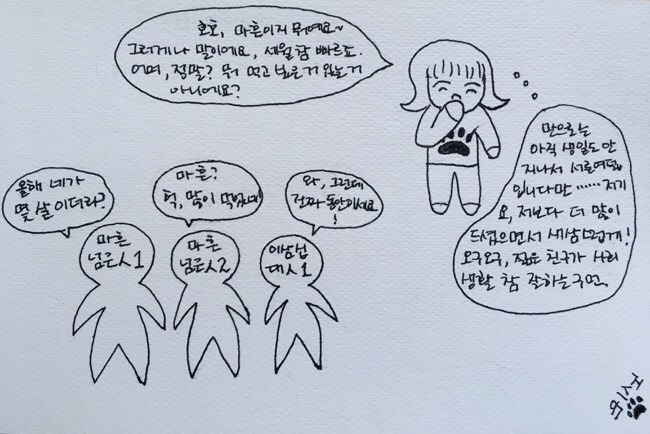 호호, 마흔이지 뭐예요~
그러게나 말이에요, 세월 참 빠르죠.
어머, 정말? 뭐 먹고 싶은거 있는거
아니에요?
만으로는
아직 생일도 안
지나서 서른여덟
입니다만 …… 저기
요, 저보다 더 많이
드셨으면서 새삼스럽게!
오구오구, 젊은 친구가 사회
생활 참 잘하는구먼.
올해 네가
몇 살 이더라?
마흔?
헉, 맘이
와, 그런데
진짜 동안이세요
!
마흔
넘은 人 1
마흔
넘은 人 2
이삼십
대 人 1